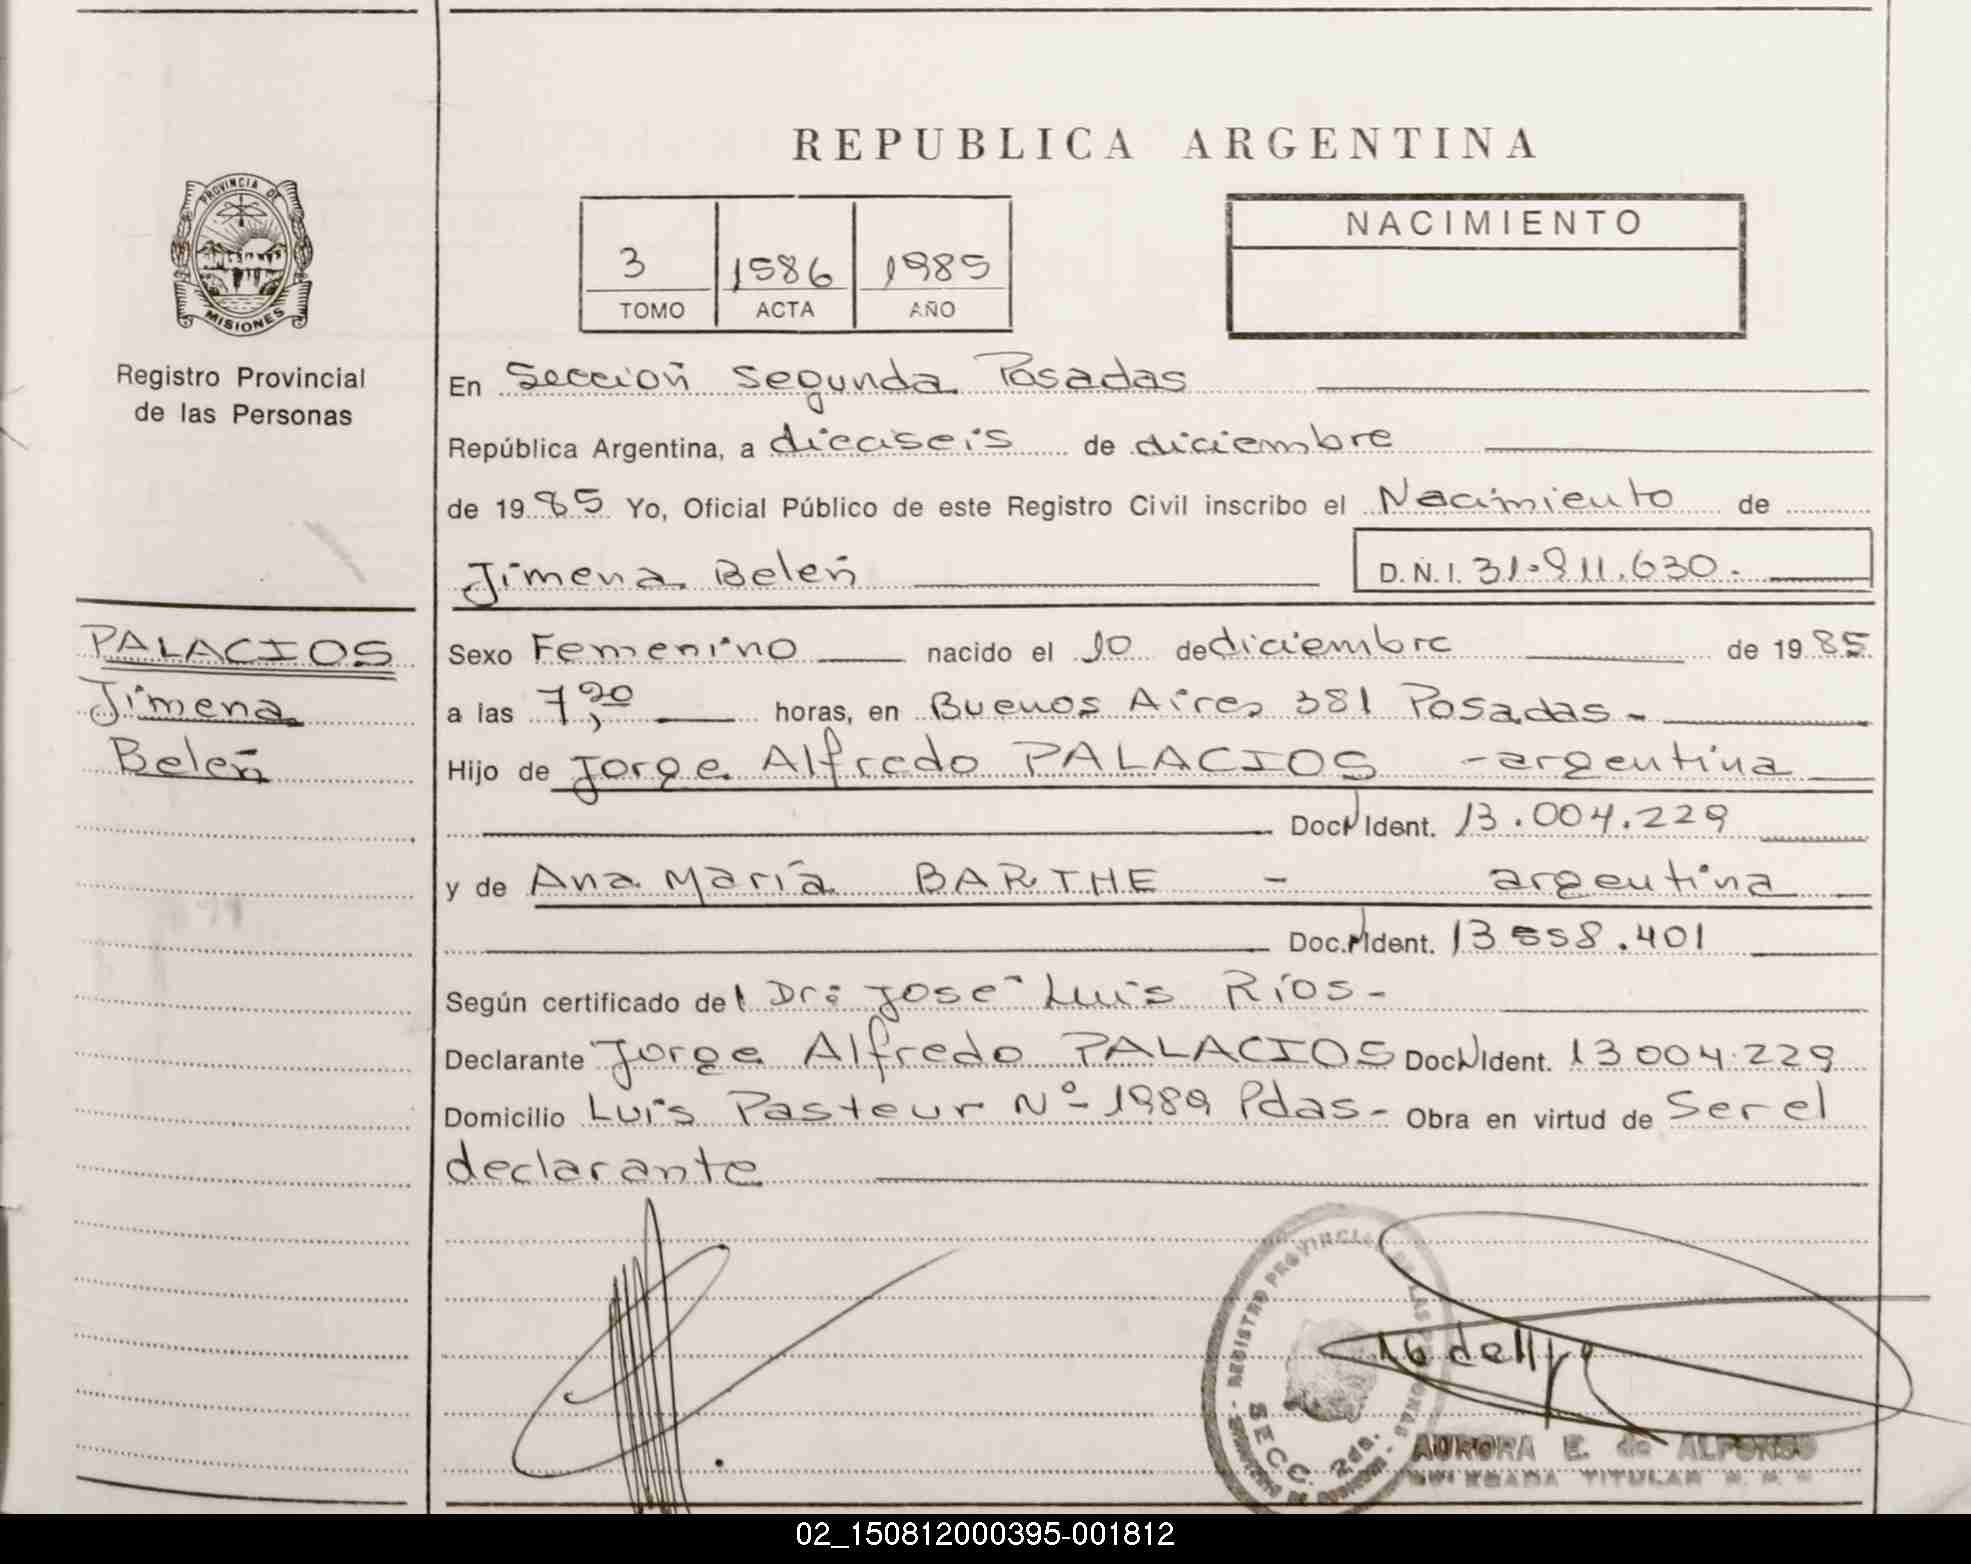 REPUBLICA ARGENTINA
PROVINCIA DE
MISIONES
Registro Provincial
de las Personas
3 1586 1985
TOMO ACTA AÑO
NACIMIENTO
En Sección Segunda Posadas
República Argentina, a dieciseis de diciembre
de 19 85 Yo, Oficial Público de este Registro Civil inscribo el Nacimiento de
Jimena Belén D.N.I. 31.911.630.
PALACIOS
Jimena
Belén
Sexo Femenino nacido el 10 de diciembre de 19 85
a las 7,20 horas, en Buenos Aires 381 Posadas -
Hijo de Jorge Alfredo PALACIOS - argentina
Doc. N Ident. 13.004.229
y de Ana María BARTHE - argentina
Doc. N Ident. 13 558.401
Según certificado del Dr: José Luis Ríos -
Declarante Jorge Alfredo PALACIOS Doc N Ident. 13 004.229
Domicilio Luis Pasteur Nº 1989 Pdas - Obra en virtud de Ser el
declarante
REGISTRO PROVINCIAL DE LAS PERSONAS
SECC. 2da.
AURORA E. de ALFONSO
DELEGADA TITULAR
02_150812000395-001812